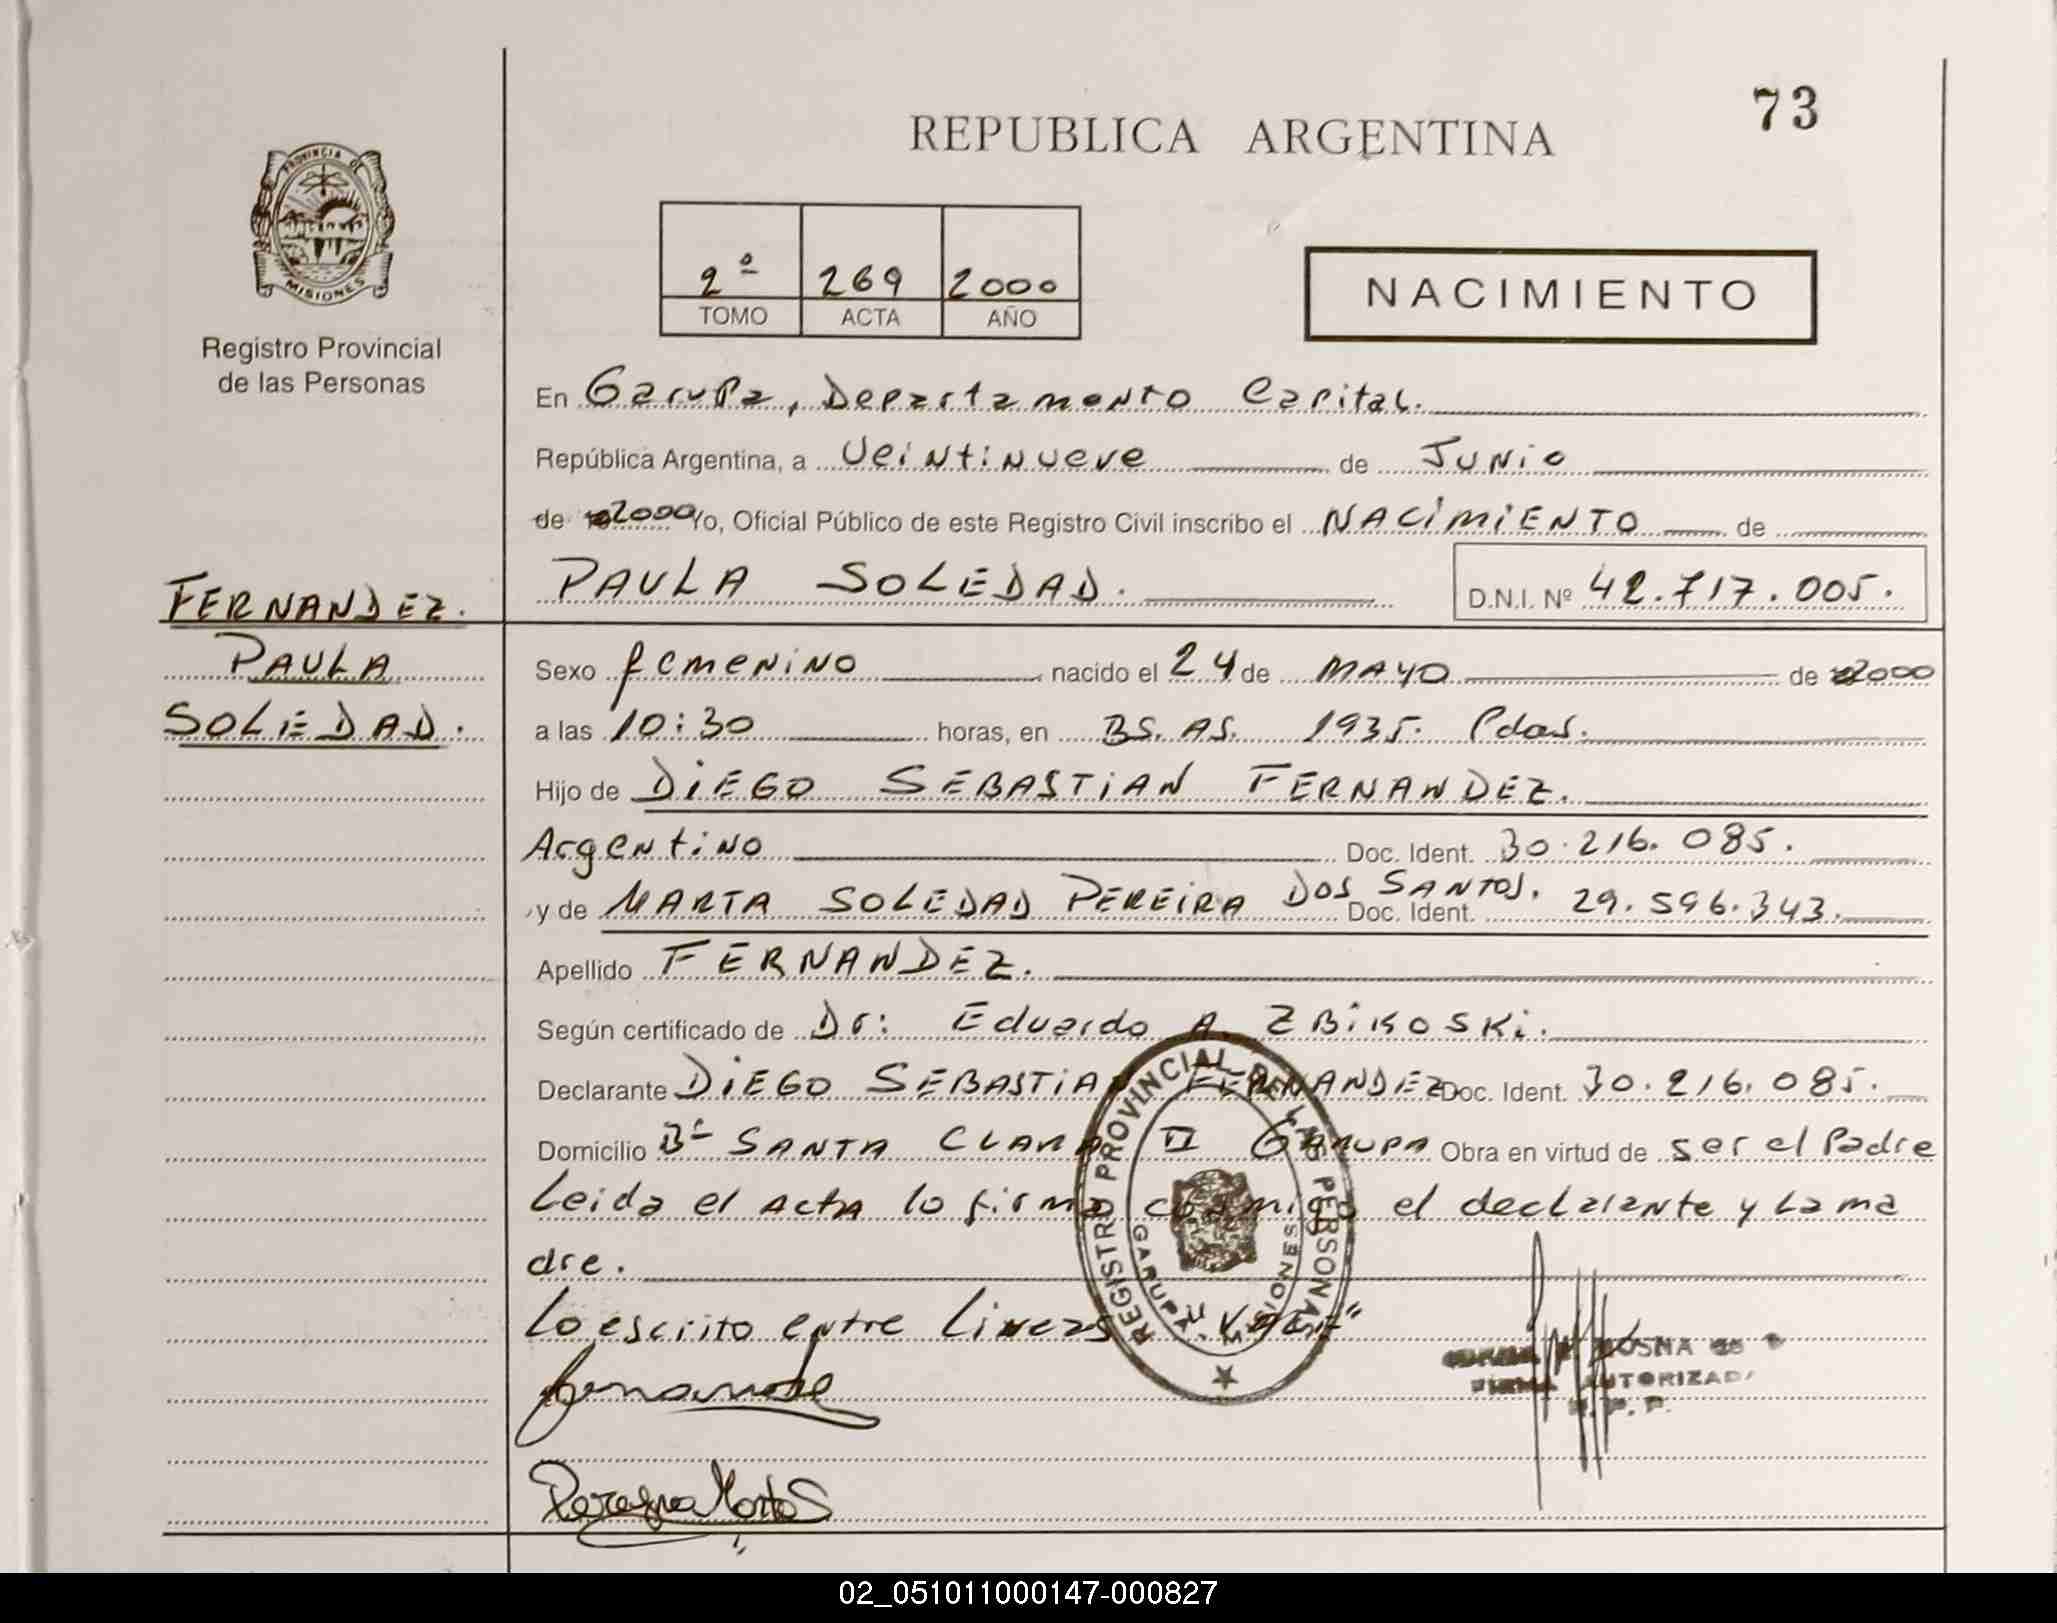 73
REPUBLICA ARGENTINA
PROVINCIA DE
MISIONES
Registro Provincial
de las Personas
2º 269 2000
TOMO ACTA AÑO
NACIMIENTO
En Garupa, Departamento Capital.
República Argentina, a Veintinueve de Junio
de 2000 Yo, Oficial Público de este Registro Civil inscribo el NACIMIENTO de
PAULA SOLEDAD. D.N.I. Nº 42.717.005.
FERNANDEZ.
PAULA
SOLEDAD.
Sexo femenino nacido el 24 de MAYO de 2000
a las 10:30 horas, en BS. AS. 1935. Pdas.
Hijo de DIEGO SEBASTIAN FERNANDEZ.
Argentino Doc. Ident. 30.216.085.
y de MARTA SOLEDAD PEREIRA DOS SANTOS. Doc. Ident. 29.596.343.
Apellido FERNANDEZ.
Según certificado de Dr: Eduardo A. ZBIKOSKI.
Declarante DIEGO SEBASTIAN FERNANDEZ Doc. Ident. 30.216.085.
Domicilio Bº SANTA CLARA II GARUPA Obra en virtud de ser el Padre
Leida el ActA lo firma conmigo el declarante y La ma
dre.
Lo escrito entre Lineas "VALE"
REGISTRO PROVINCIAL DE LAS PERSONAS
GARUPA MISIONES
FIRMA AUTORIZADA
R. P. P.
02_051011000147-000827